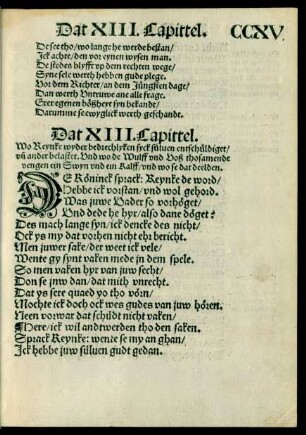 Dat XIII. Capittel. CCXV
De see tho/ wo lange he werde bestan/
Ick achte/ den vor eynen wysen man.
De steden blyfft vp dem rechten wege/
Syne sele werth hebben gude plege.
Vor dem Richter/ an dem Jüngsten dage/
Dan werth Vntruwe ane alle frage.
Erer egenen bößheyt syn bekandt/
Darumme se ewyglick werth geschandt.
Dat XIII. Capittel.
Wo Reynke wyder bedrechlyken seck sülven entschüldiget/
vñ ander belastet. Vnd wo de Wulff vnd Voß thosamende
vengen ein Swyn vnd ein Kalff/ vnd wo se dat deelden.
De Köninck sprack: Reynke de word/
Hebbe ick vorstan/ vnd wol gehord.
Was juwe Vader so vorhöget/
Vnd dede he hyr/ also dane döget?
Des mach lange syn/ ick dencke des nicht/
Ock ys my dat vorhen nicht ehr bericht.
Men juwer sake/ der weet ick vele/
Wente gy synt vaken mede in dem spele.
So men vaken hyr van juw secht/
Don se juw dan/ dat mith vnrecht.
Dat ys sere quaed yo tho vörn/
Mochte ick doch ock wes gudes van juw hören.
Neen vorwar dat schüdt nicht vaken/
Here/ ick wil andtwerden tho den saken.
Sprack Reynke: wente se my an ghan/
Ick hebbe juw sülven gudt gedan.